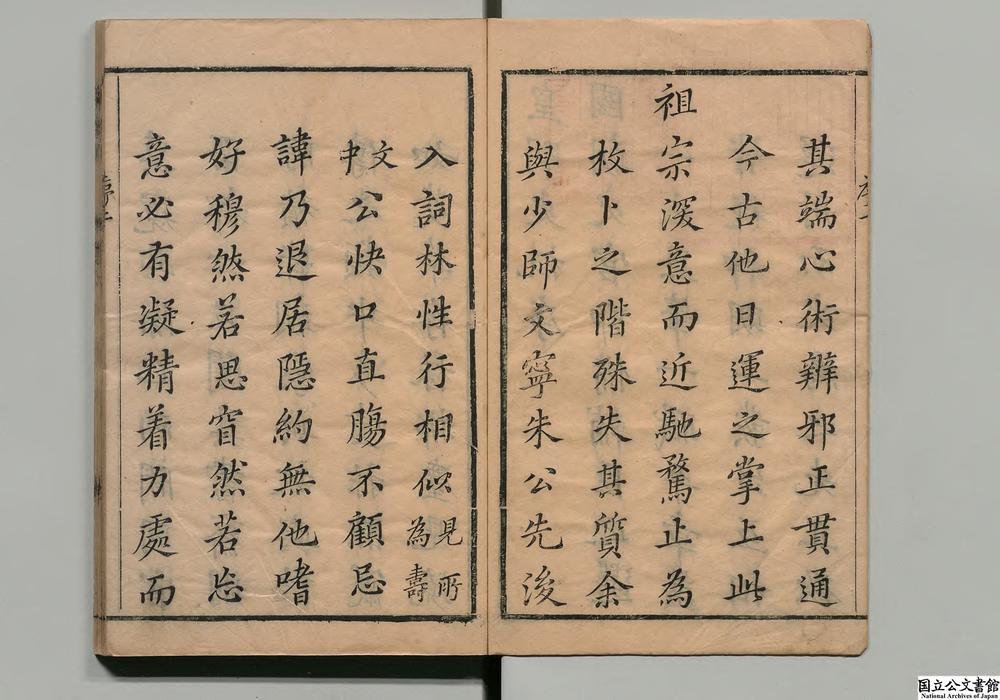 其端心術辨邪正貫通
今古他日運之掌上此
祖宗深意而近馳騖止為
枚卜之階殊失其質余
與少師文寧朱公先後
入詞林性行相似見所為壽
文中公快口直腸不顧忌
諱乃退居隱約無他嗜
好穆然若思窅然若忘
意必有凝精着力處而
国立公文書館
National Archives of Japan